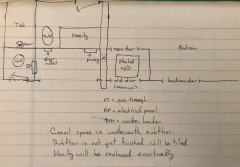 Tub
toilet
Vanity
new door
Bedroom
stacked W/D
old door
(remove)
bedroom door
PT = pass-through
EP = electrical panel
WH = water heater
Crawl space is underneath subfloor.
Subfloor is not yet finished, will be tiled
Vanity will be replaced eventually